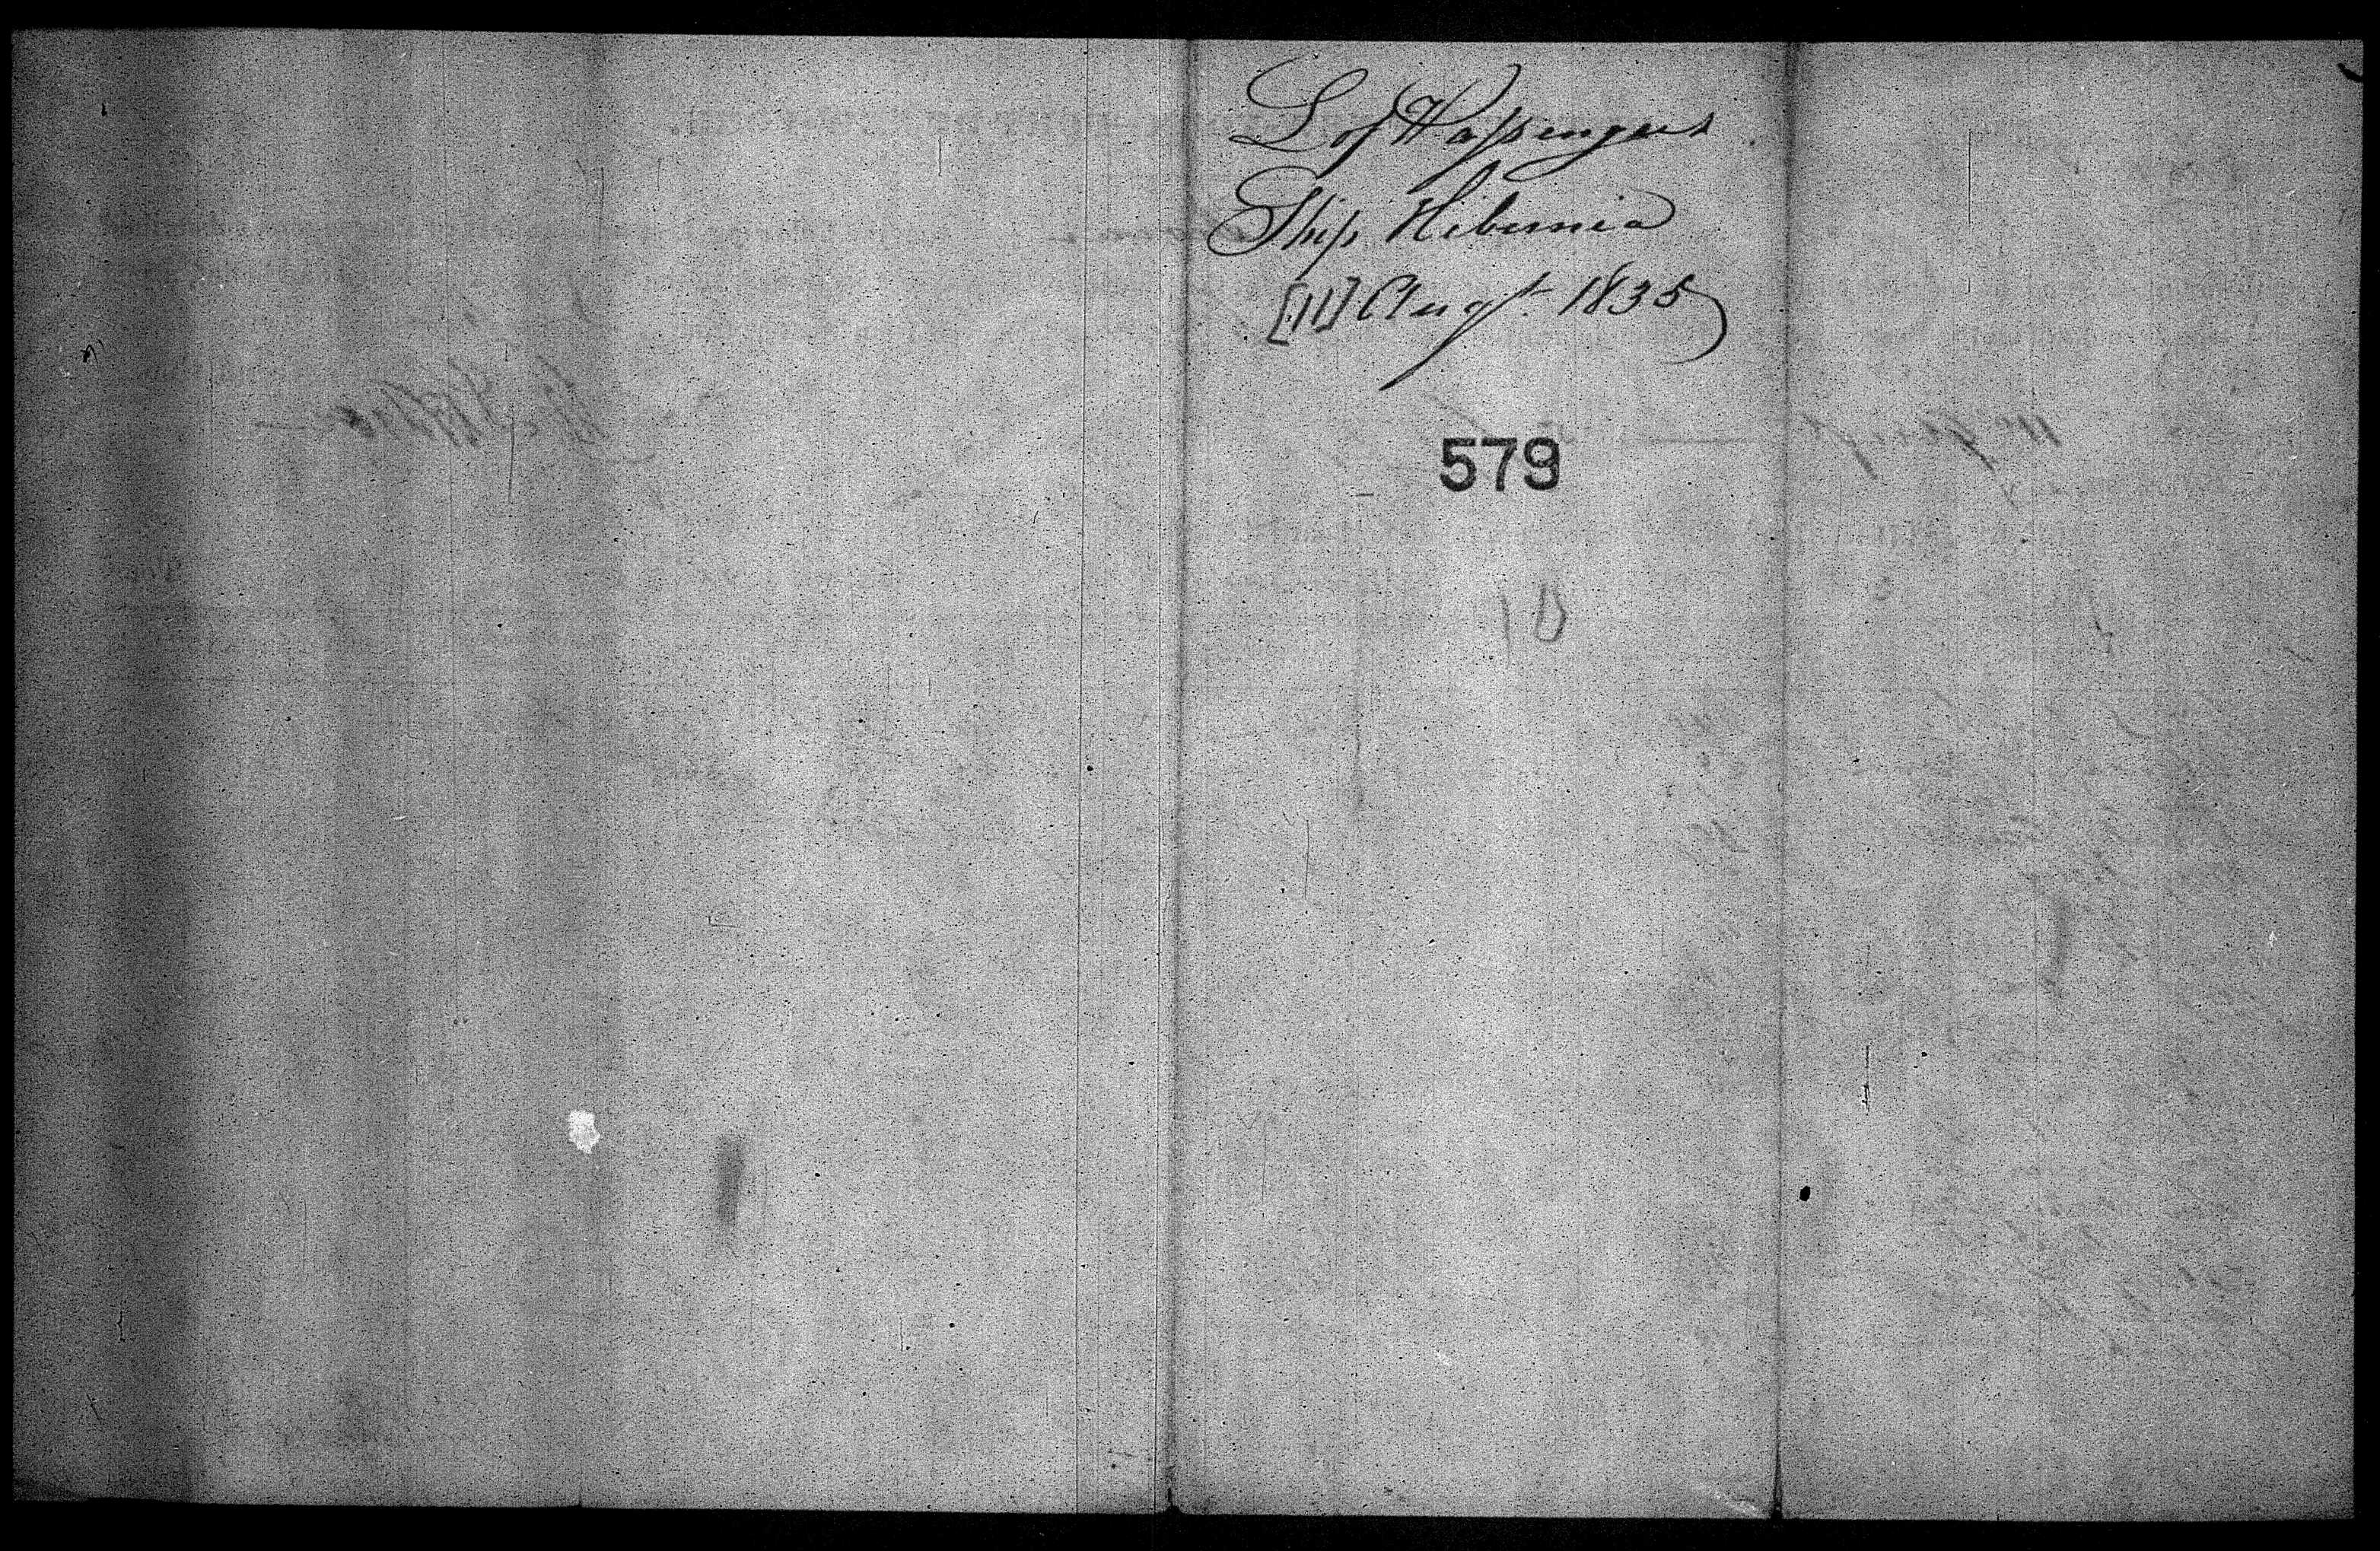 L of Passengers
Ship Hibernia
[11] Augt. 1835
579